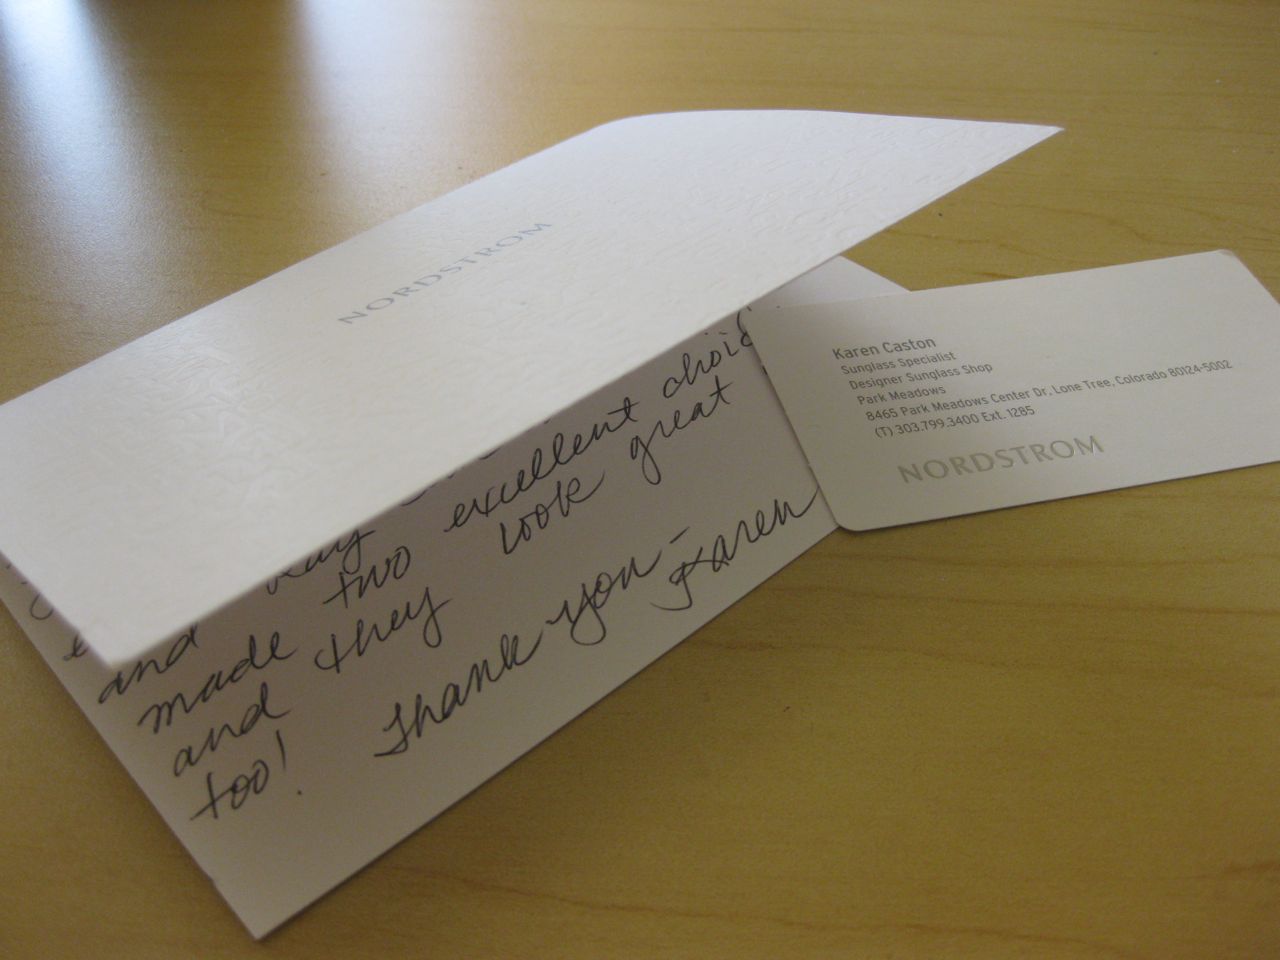 NORDSTROM
and
made two excellent
and they look great
too!
Thank you-
Karen
Karen Caston
Sunglass Specialist
Designer Sunglass Shop
Park Meadows
8465 Park Meadows Center Dr, Lone Tree, Colorado 80124-5002
(T) 303.799.3400 Ext. 1285
NORDSTROM